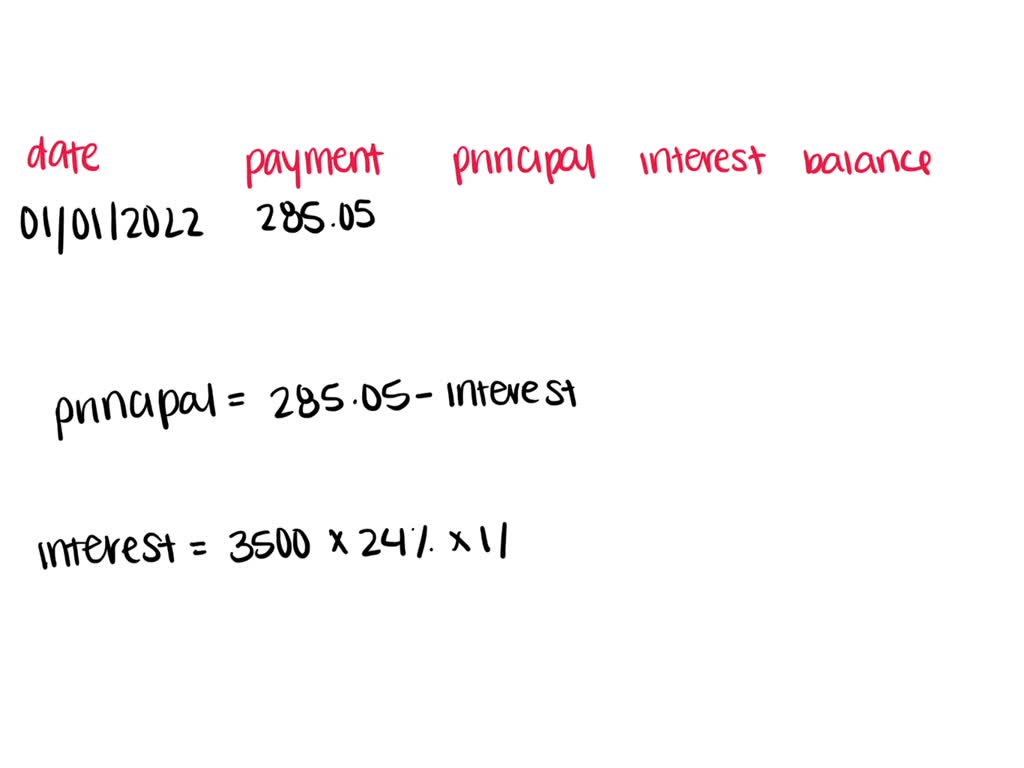 date payment principal interest balance
01/01/2022 285.05
principal = 285.05 - interest
interest = 3500 x 24% x 1/